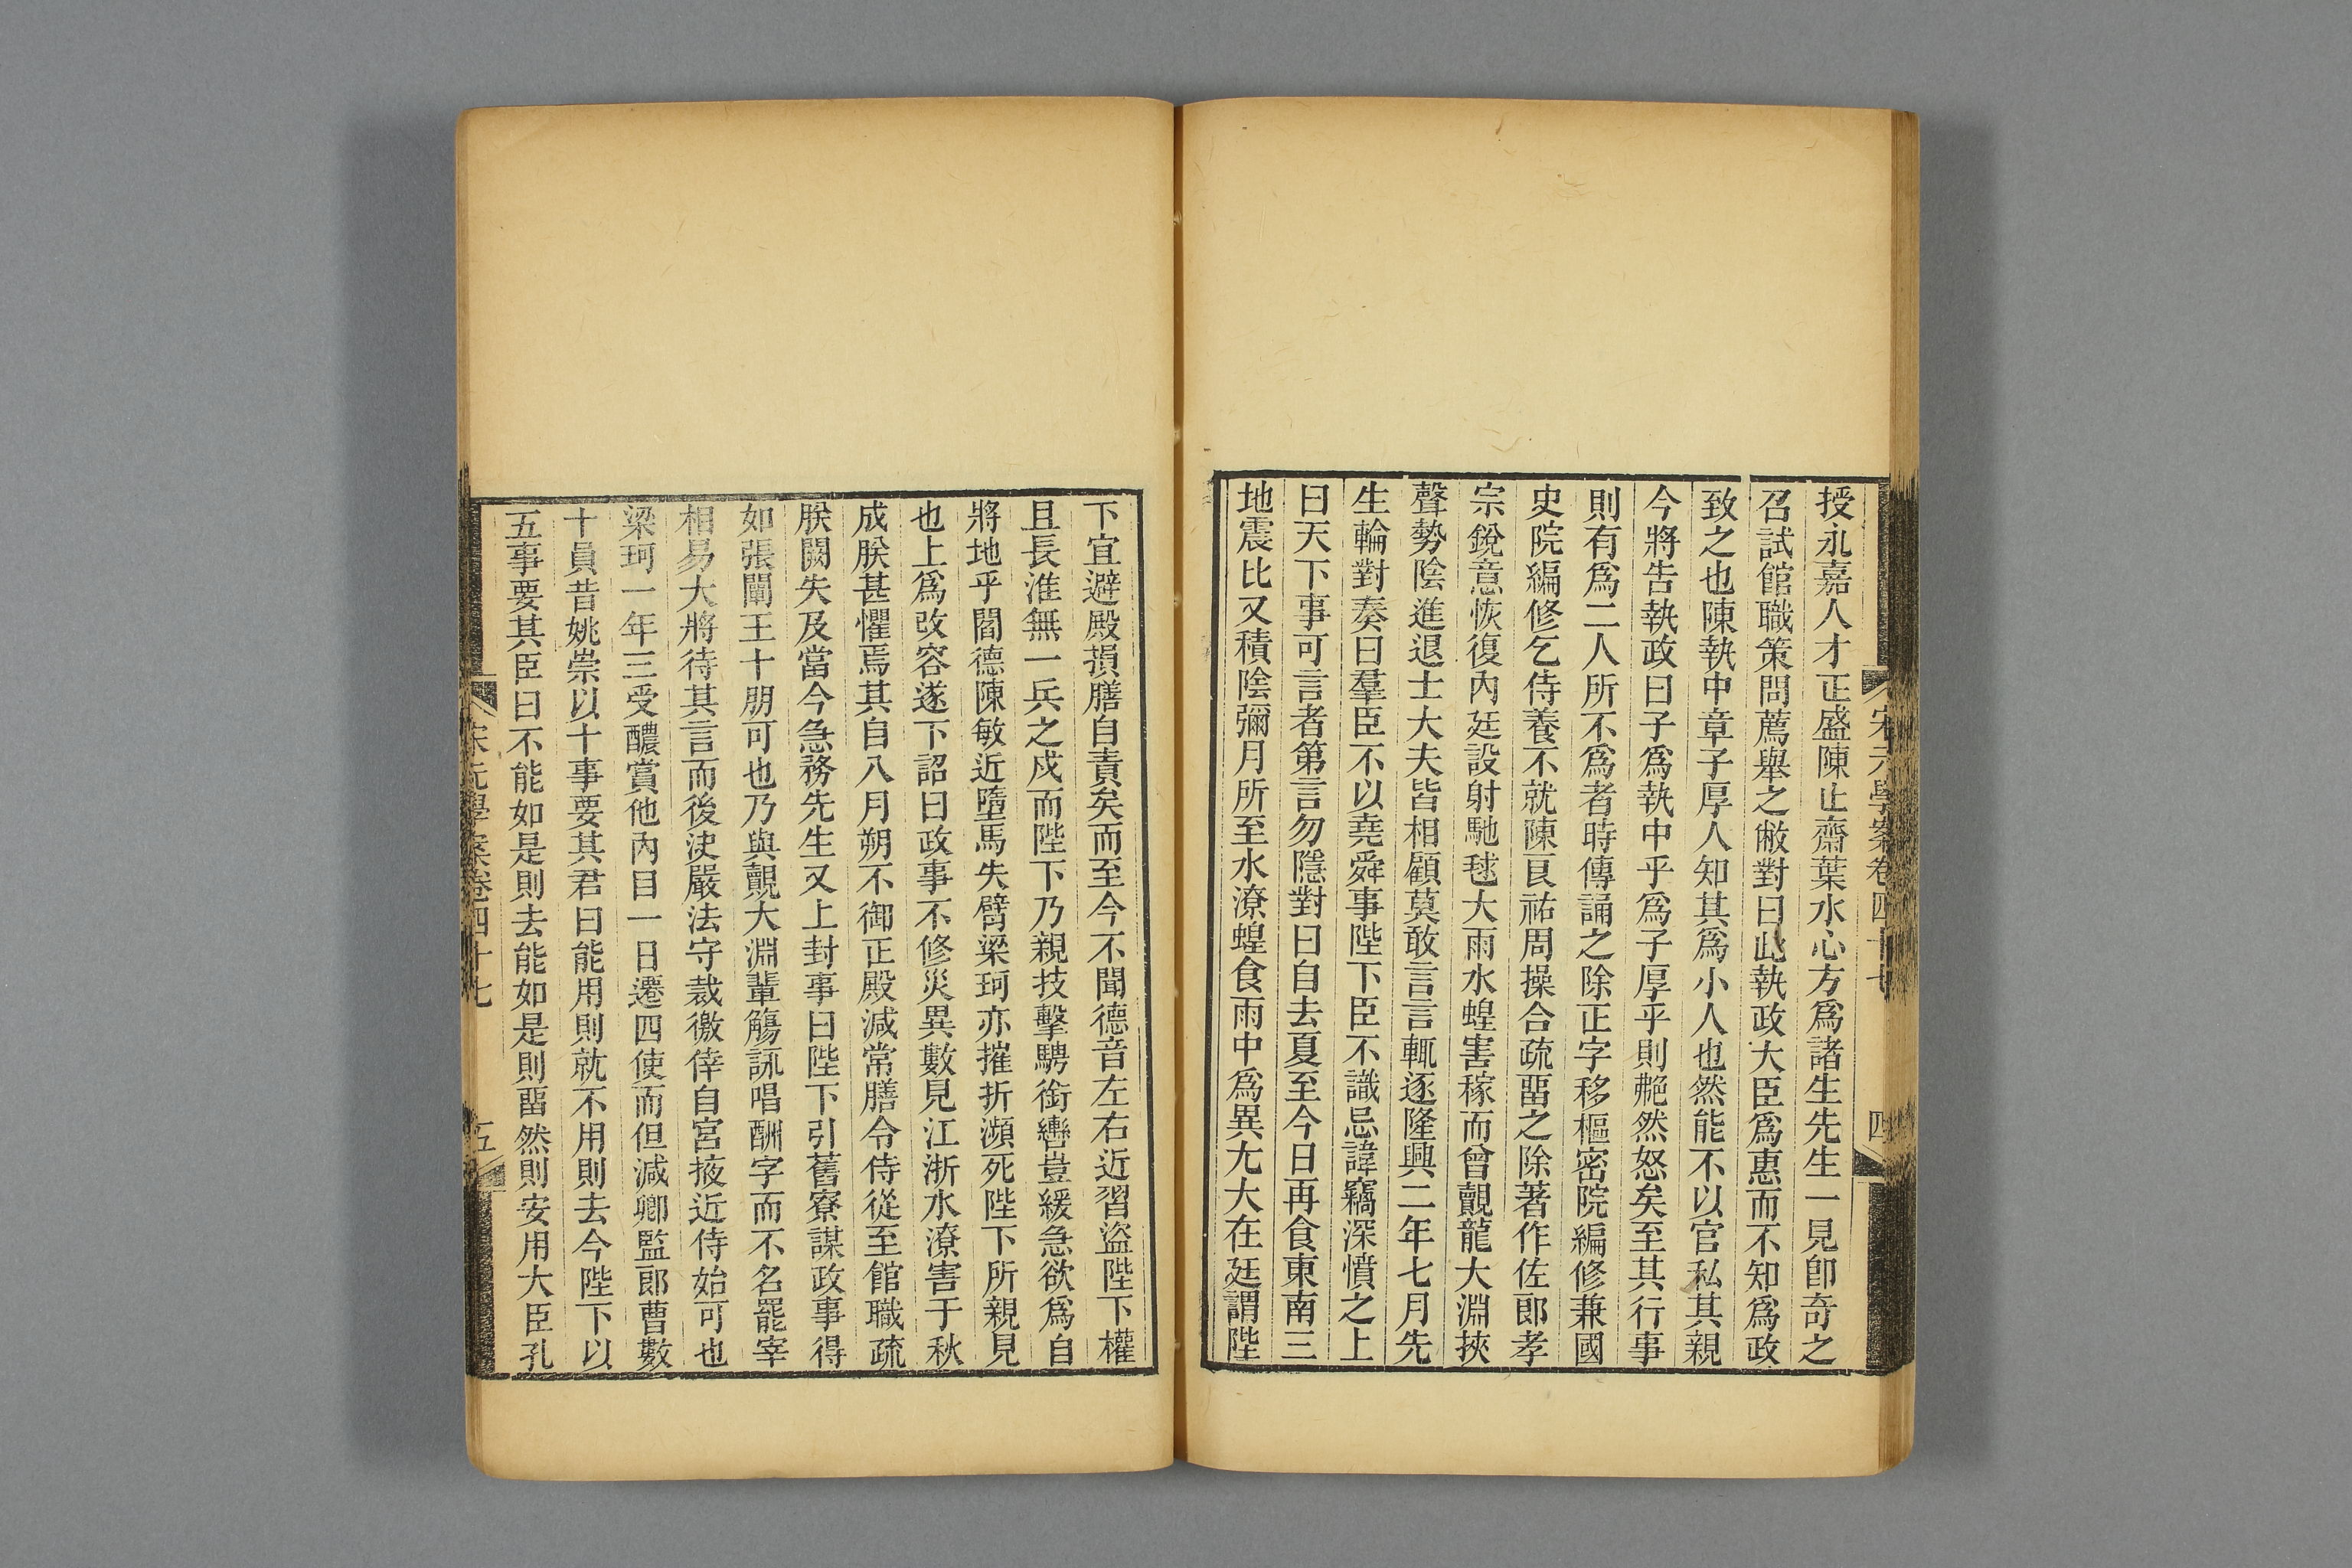 宋元學案卷四十七
四
授永嘉人才正盛陳止齋葉水心方爲諸生先生一見卽奇之
召試館職策問薦舉之敝對曰此執政大臣爲惠而不知爲政
致之也陳執中章子厚人知其爲小人也然能不以官私其親
今將告執政曰子爲執中乎爲子厚乎則艴然怒矣至其行事
則有爲二人所不爲者時傳誦之除正字移樞密院編修兼國
史院編修乞侍養不就陳良祐周操合疏畱之除著作佐郎孝
宗銳意恢復內廷設射馳毬大雨水蝗害稼而曾覿龍大淵挾
聲勢陰進退士大夫皆相顧莫敢言言輒逐隆興二年七月先
生輪對奏曰羣臣不以堯舜事陛下臣不識忌諱竊深憤之上
曰天下事可言者第言勿隱對曰自去夏至今日再食東南三
地震比又積陰彌月所至水潦蝗食雨中爲異尢大在廷謂陛
下宜避殿損膳自責矣而至今不聞德音左右近習盜陛下權
且長淮無一兵之戍而陛下乃親技擊騁銜轡豈緩急欲爲自
將地乎閻德陳敏近墮馬失臂梁珂亦摧折瀕死陛下所親見
也上爲改容遂下詔曰政事不修災異數見江浙水潦害于秋
成朕甚懼焉其自八月朔不御正殿減常膳令侍從至館職疏
朕闕失及當今急務先生又上封事曰陛下引舊寮謀政事得
如張闡王十朋可也乃與覿大淵輩觴詠唱酬字而不名罷宰
相易大將待其言而後決嚴法守裁徼倖自宮掖近侍始可也
梁珂一年三受醲賞他內目一日遷四使而但減卿監郎曹數
十員昔姚崇以十事要其君曰能用則就不用則去今陛下以
五事要其臣曰不能如是則去能如是則畱然則安用大臣孔
宋元學案卷四十七
五